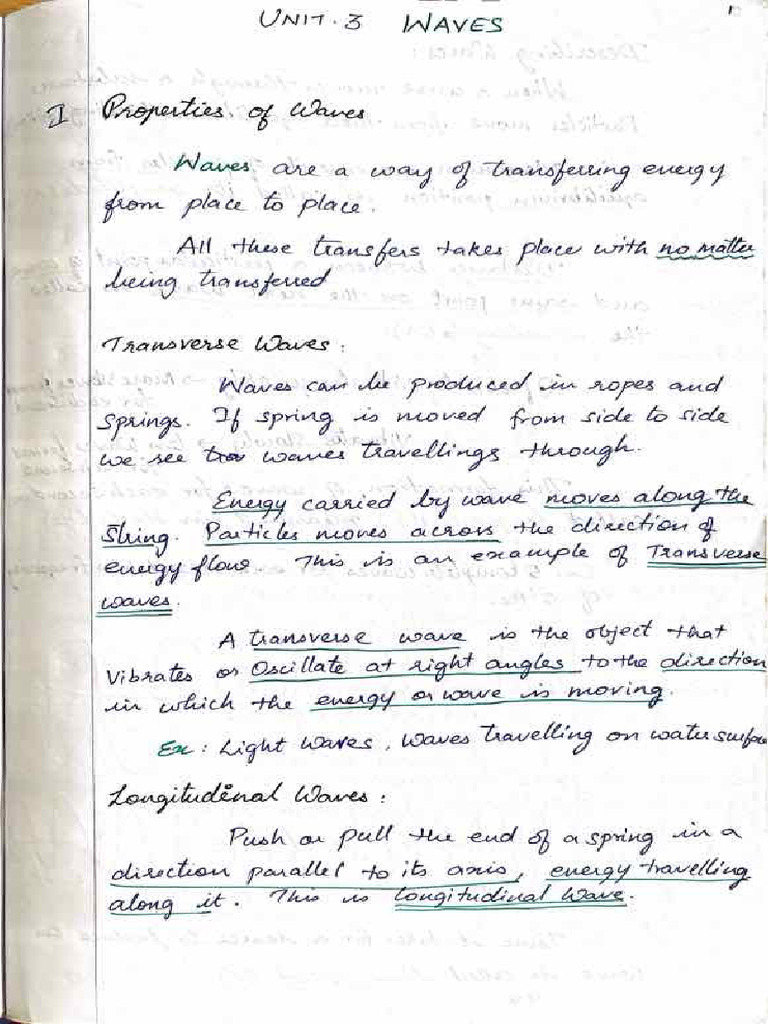 UNIT-3 WAVES
1 Properties of Waves
Waves are a way of transferring energy
from place to place.
All these transfers takes place with no matter
being transferred
Transverse Waves:
Waves can be produced in ropes and
springs. If spring is moved from side to side
we see waves travellings through.
Energy carried by wave moves along the
String. Particles moves across the direction of
energy flow. This is an example of Transverse
waves.
A transverse wave is the object that
Vibrates or Oscillate at right angles to the direction
in which the energy or wave is moving.
Ex: Light waves, Waves travelling on water surface
Longitudinal Waves:
Push or pull the end of a spring in a
direction parallel to its axis, energy travelling
along it. This is Longitudinal Wave.